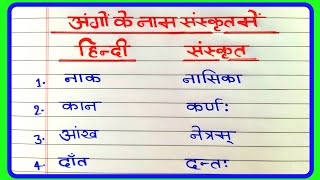 अंगों के नाम संस्कृत में
हिन्दी संस्कृत
1. नाक नासिका
2. कान कर्णः
3. आंख नेत्रस्
4. दाँत दन्तः